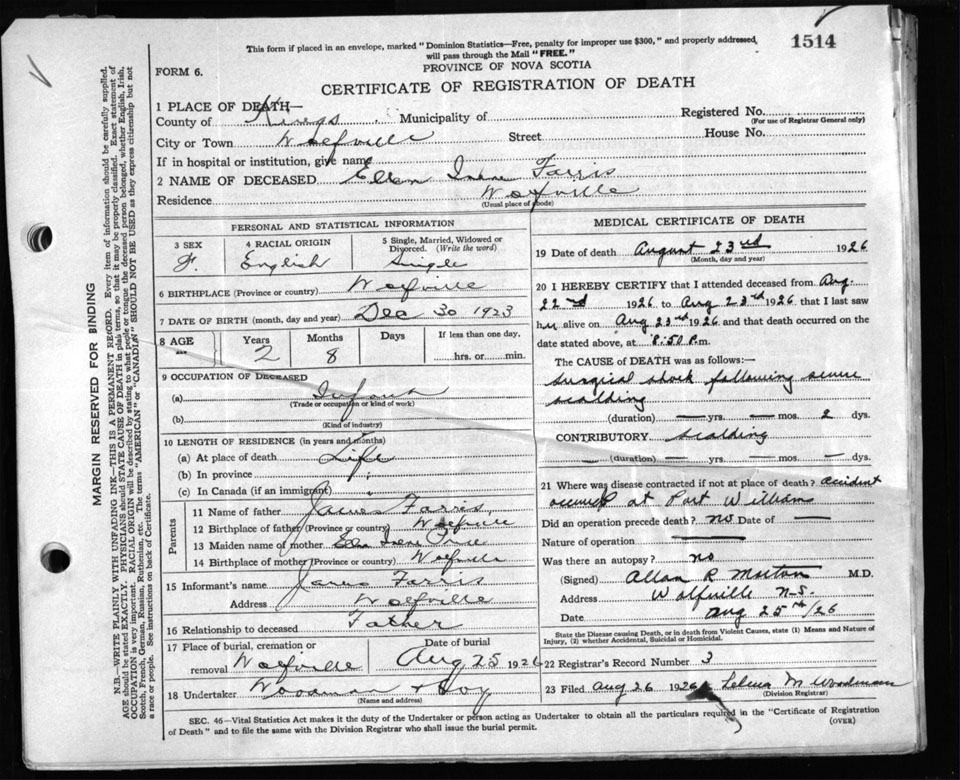 This form if placed in an envelope, marked "Dominion Statistics—Free, penalty for improper use $300," and properly addressed,
will pass through the Mail "FREE."
1514
PROVINCE OF NOVA SCOTIA
FORM 6.
CERTIFICATE OF REGISTRATION OF DEATH
1 PLACE OF DEATH—
County of Kings Municipality of Registered No.
(For use of Registrar General only)
City or Town Wolfville Street House No.
If in hospital or institution, give name
2 NAME OF DECEASED Ellen Irene Farris
Residence Wolfville
(Usual place of abode)
PERSONAL AND STATISTICAL INFORMATION
3 SEX 4 RACIAL ORIGIN 5 Single, Married, Widowed or Divorced. (Write the word)
F. English Single
6 BIRTHPLACE (Province or country) Wolfville
7 DATE OF BIRTH (month, day and year) Dec 30 1923
8 AGE Years Months Days If less than one day,
2 8 hrs. or min.
9 OCCUPATION OF DECEASED
(a) Infant
(Trade or occupation or kind of work)
(b)
(Kind of industry)
10 LENGTH OF RESIDENCE (in years and months)
(a) At place of death Life
(b) In province "
(c) In Canada (if an immigrant) "
Parents
11 Name of father James Farris
12 Birthplace of father (Province or country) Wolfville
13 Maiden name of mother Irene
14 Birthplace of mother (Province or country) Wolfville
15 Informant's name James Farris
Address Wolfville
16 Relationship to deceased Father
17 Place of burial, cremation or removal Wolfville
Date of burial Aug 25 1926
18 Undertaker Woodman &
(Name and address)
MEDICAL CERTIFICATE OF DEATH
19 Date of death August 23rd 1926
(Month, day and year)
20 I HEREBY CERTIFY that I attended deceased from Aug.
22nd 1926 to Aug 23rd 1926 that I last saw
her alive on Aug 23rd 1926 and that death occurred on the
date stated above, at 8:50 P.m.
The CAUSE of DEATH was as follows:—
Surgical shock following severe
scalding
(duration) — yrs. — mos. 2 dys.
CONTRIBUTORY scalding
— (duration) — yrs. — mos. — dys.
21 Where was disease contracted if not at place of death? accident
occured at Port Williams
Did an operation precede death? no Date of —
Nature of operation —
Was there an autopsy? no
(Signed) Allan R Morton M.D.
Address Wolfville N.S.
Date Aug 25th/26
State the Disease causing Death, or in death from Violent Causes, state (1) Means and Nature of
Injury, (2) whether Accidental, Suicidal or Homicidal.
22 Registrar's Record Number 3
23 Filed Aug 26 1926 Selma M Woodman
(Division Registrar)
SEC. 46—Vital Statistics Act makes it the duty of the Undertaker or person acting as Undertaker to obtain all the particulars required in the "Certificate of Registration
of Death" and to file the same with the Division Registrar who shall issue the burial permit. (OVER)
MARGIN RESERVED FOR BINDING
N.B.—WRITE PLAINLY WITH UNFADING INK—THIS IS A PERMANENT RECORD. Every item of information should be carefully supplied.
AGE should be stated EXACTLY. PHYSICIANS should STATE CAUSE OF DEATH in plain terms, so that it may be properly classified. Exact statement of
OCCUPATION is very important. RACIAL ORIGIN will be described by stating to what people or tongue the deceased person belonged, whether English, Irish,
Scotch, French, German, Russian, Ruthenian, etc. The terms "AMERICAN" or "CANADIAN" SHOULD NOT BE USED as they express citizenship but not
a race or people. See instructions on back of Certificate.